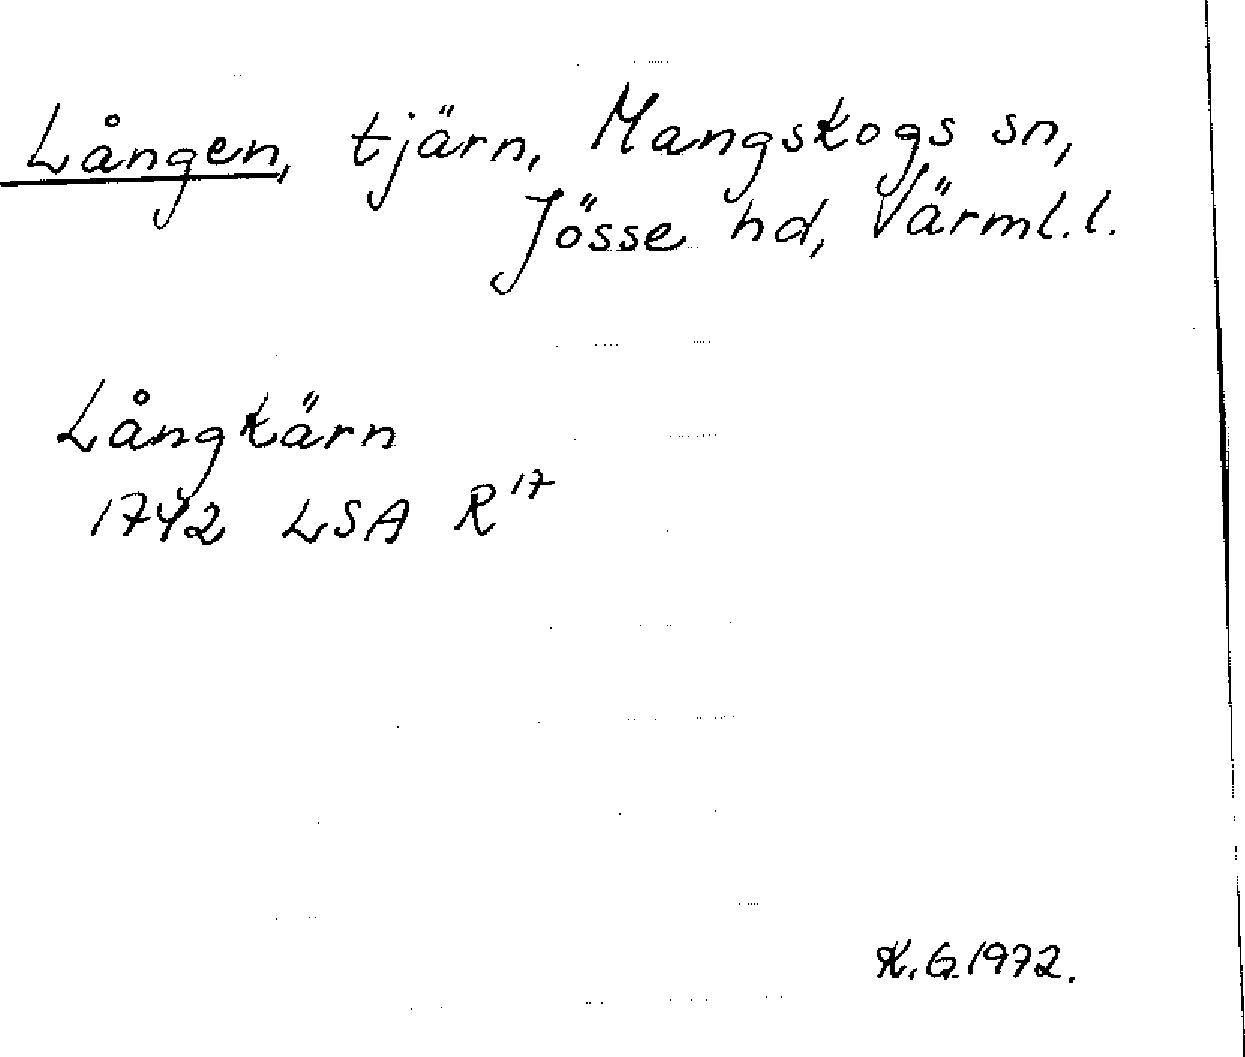 Lången, tjärn, Mangskogs sn,
Jösse hd, Värml. l.
Långkärn
1742 LSA R 17
K.G. 1972.